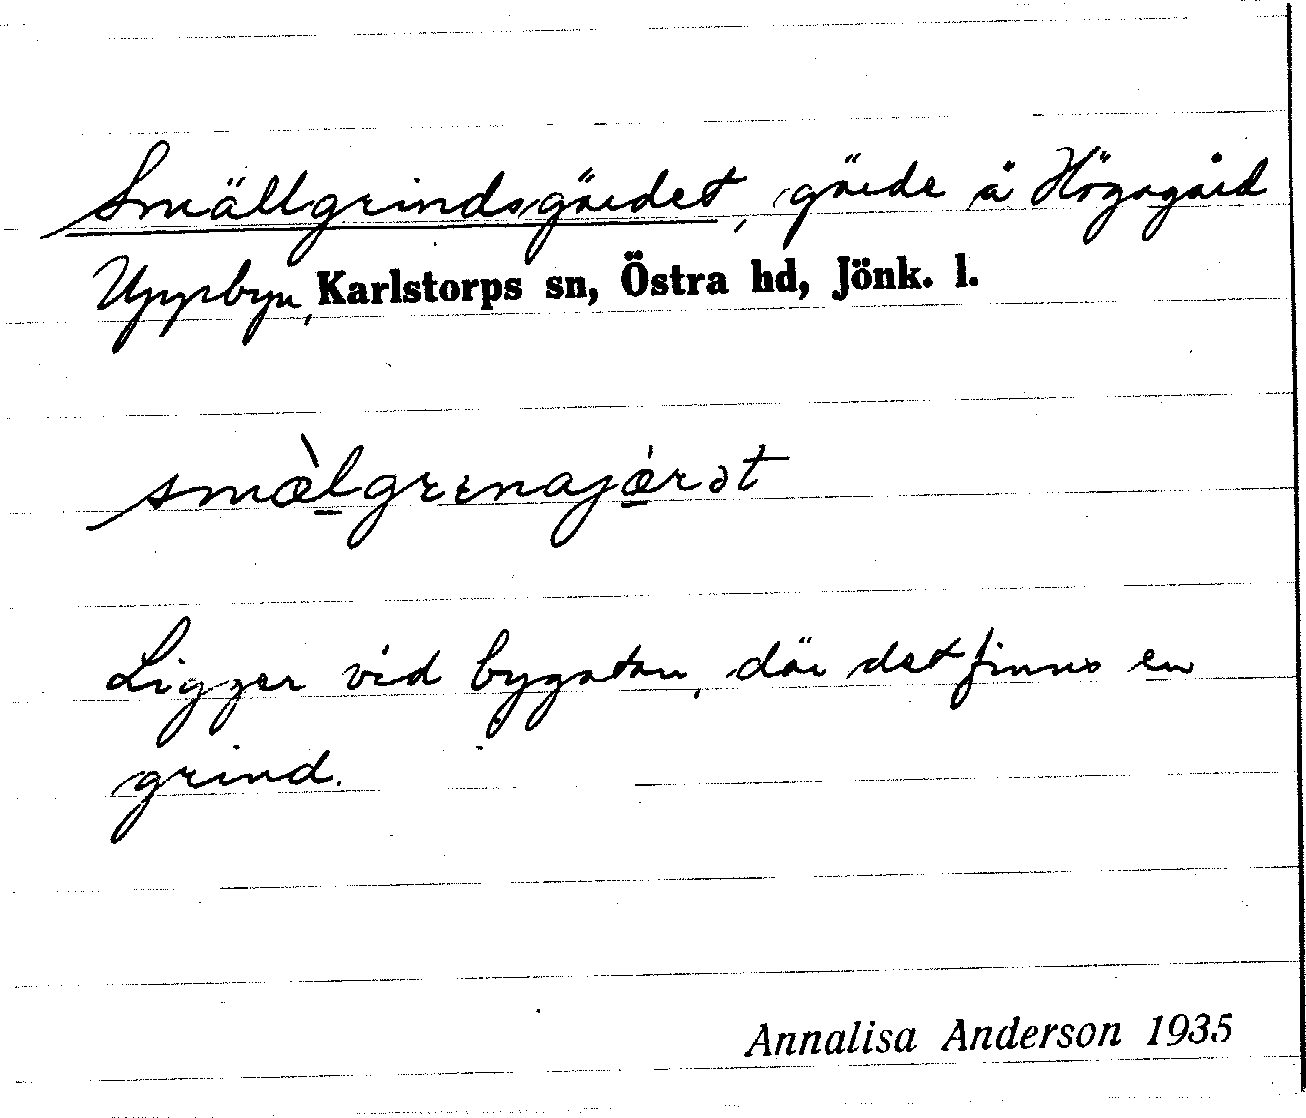 Smällgrindsgärdet, gärde å Högagärd
Uppbyn, Karlstorps sn, Östra hd, Jönk. l.
smæ̀lgrɪnajǽrət
Ligger vid bygatan, där det finns en
grind.
Annalisa Anderson 1935